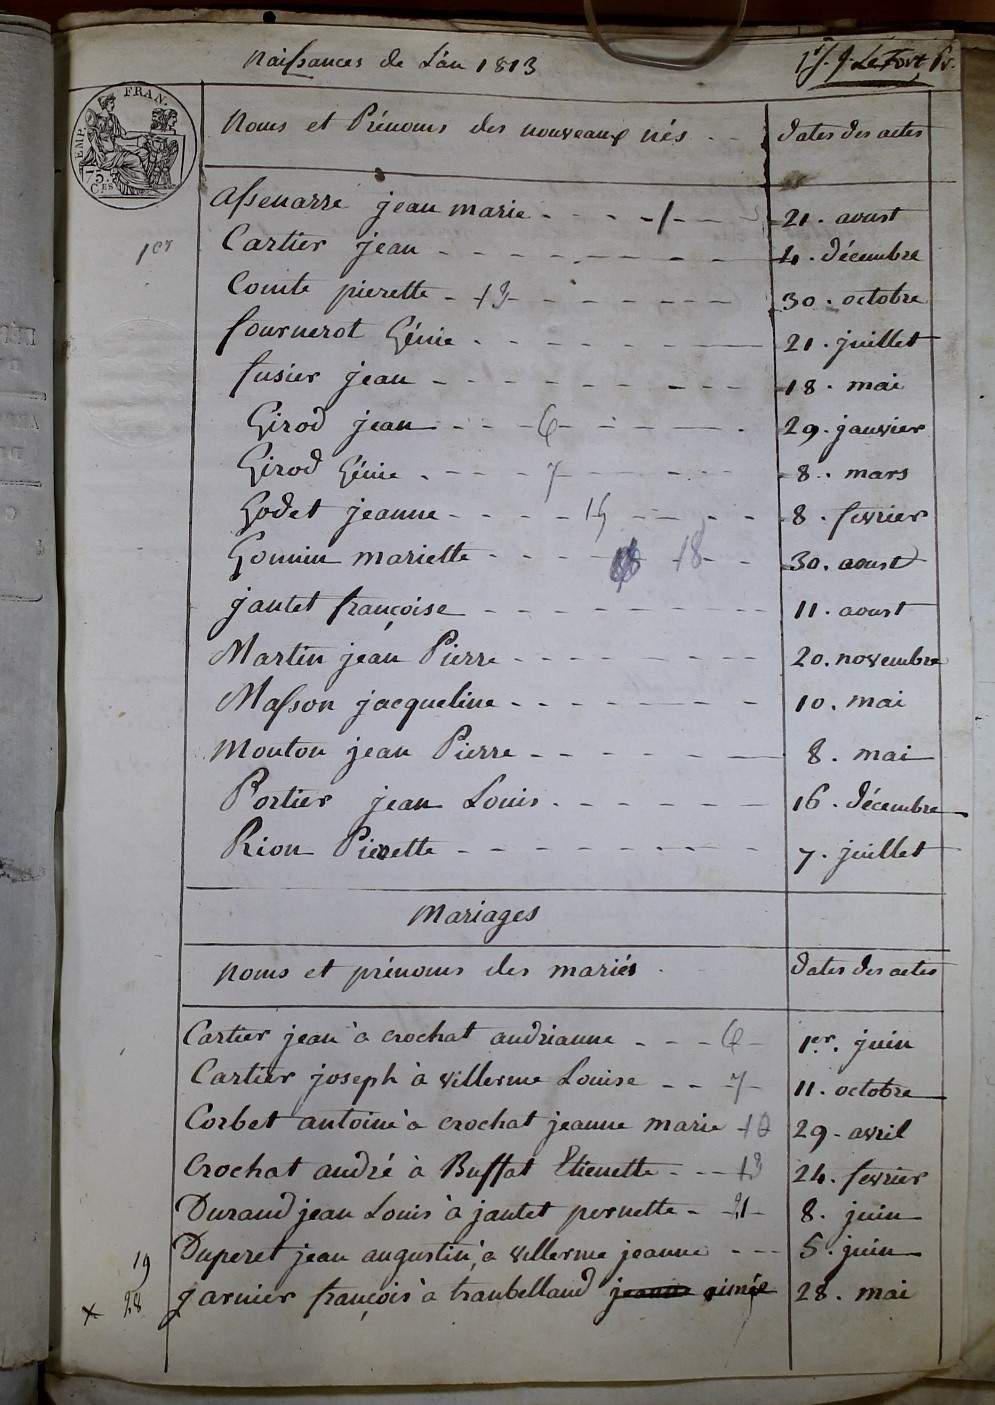 Naissances de L'an 1813
J. Le Fort Pr.
EMP. FRAN.
75. CES
Noms et Prénoms des nouveaux nés - dates des actes
Assenarre jean marie - 1 - 21. aoust
1er Cartier jean - 4. décembre
Comte pierette - 13 - 30. octobre
fournerot Génie - 21. juillet
fusier jean - 18. mai
Girod jean - 6 - 29. janvier
Girod Génie - 7 - 8. mars
Godet jeanne - 15 - 8. fevrier
Gonnin mariette - 18 - 30. aoust
jantet françoise - 11. aoust
Martin jean Pierre - 20. novembre
Masson jacqueline - 10. mai
Mouton jean Pierre - 8. mai
Portier jean Louis - 16. décembre
Rion Pierette - 7. juillet
Mariages
Noms et prénoms des mariés - dates des actes
Cartier jean à crochat andrianne - 6 - 1er. juin
Cartier joseph à villerme Louise - 7 - 11. octobre
Corbet antoine à crochat jeanne marie 10 29. avril
Crochat andré à Buffat Etienette - 13 24. fevrier
Durand jean Louis à jantet pernette - 21 - 8. juin
19 Duperet jean augustin à villerme jeanne - 5. juin
x 28 garnier françois à traubelland jeanne aimée 28. mai